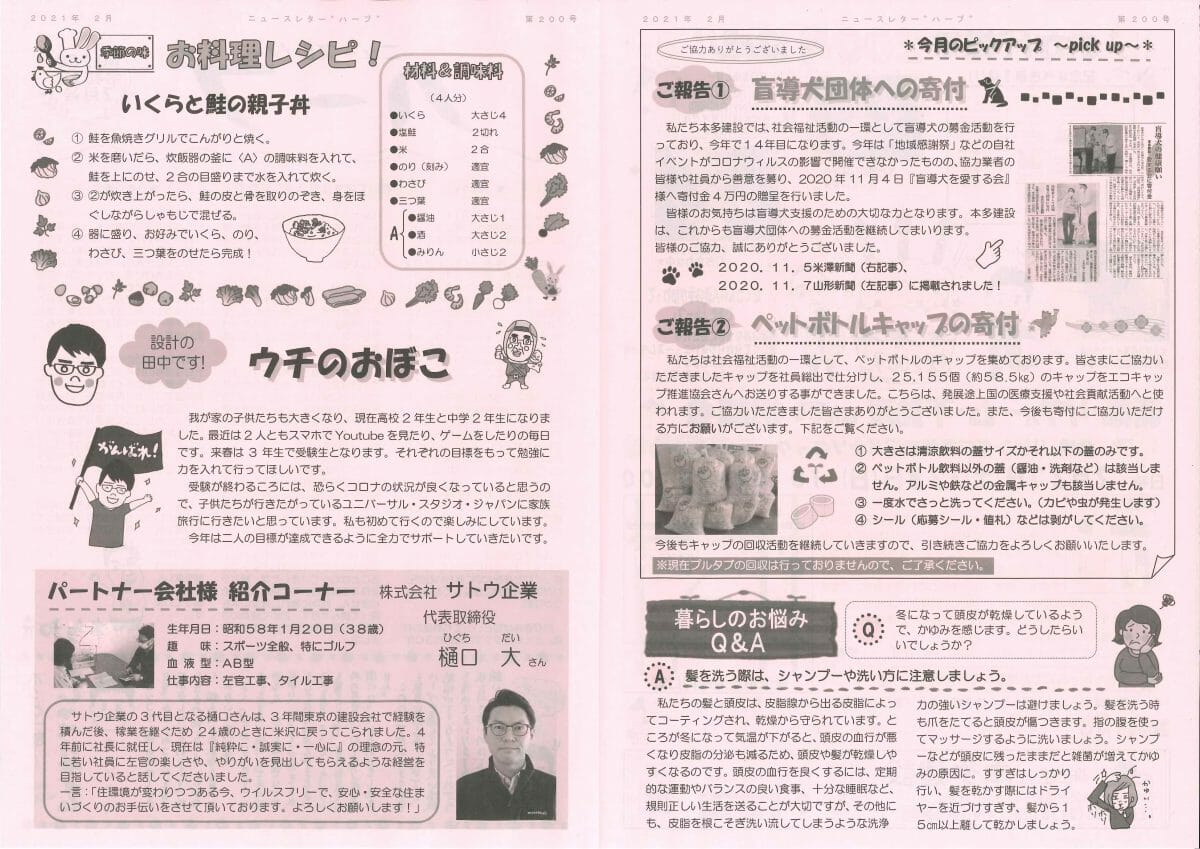 ２０２１年　２月
ニュースレター"ハーブ"
第２００号
季節の味
お料理レシピ！
いくらと鮭の親子丼
① 鮭を魚焼きグリルでこんがりと焼く。
② 米を磨いだら、炊飯器の釜に〈A〉の調味料を入れて、
鮭を上にのせ、２合の目盛りまで水を入れて炊く。
③ ②が炊き上がったら、鮭の皮と骨を取りのぞき、身をほ
ぐしながらしゃもじで混ぜる。
④ 器に盛り、お好みでいくら、のり、
わさび、三つ葉をのせたら完成！
材料＆調味料
（４人分）
●いくら　大さじ４
●塩鮭　２切れ
●米　２合
●のり（刻み）　適宜
●わさび　適宜
●三つ葉　適宜
A
●醤油　大さじ１
●酒　大さじ２
●みりん　小さじ２
設計の
田中です！
ウチのおぼこ
がんばれ！
我が家の子供たちも大きくなり、現在高校２年生と中学２年生になりま
した。最近は２人ともスマホでYoutubeを見たり、ゲームをしたりの毎日
です。来春は３年生で受験生となります。それぞれの目標をもって勉強に
力を入れて行ってほしいです。
受験が終わるころには、恐らくコロナの状況が良くなっていると思うの
で、子供たちが行きたがっているユニバーサル・スタジオ・ジャパンに家族
旅行に行きたいと思っています。私も初めて行くので楽しみにしています。
今年は二人の目標が達成できるように全力でサポートしていきたいです。
パートナー会社様 紹介コーナー
株式会社 サトウ企業
代表取締役
ひぐち　だい
樋口　大さん
生年月日：昭和５８年１月２０日（３８歳）
趣　味：スポーツ全般、特にゴルフ
血 液 型：AB型
仕事内容：左官工事、タイル工事
サトウ企業の３代目となる樋口さんは、３年間東京の建設会社で経験を
積んだ後、稼業を継ぐため２４歳のときに米沢に戻ってこられました。４
年前に社長に就任し、現在は『純粋に・誠実に・一心に』の理念の元、特
に若い社員に左官の楽しさや、やりがいを見出してもらえるような経営を
目指していると話してくださいました。
一言：「住環境が変わりつつある今、ウイルスフリーで、安心・安全な住ま
いづくりのお手伝いをさせて頂いております。よろしくお願いします！」
２０２１年　２月
ニュースレター"ハーブ"
第２００号
ご協力ありがとうございました
＊今月のピックアップ　～pick up～＊
ご報告①
盲導犬団体への寄付
私たち本多建設では、社会福祉活動の一環として盲導犬の募金活動を行
っており、今年で１４年目になります。今年は「地域感謝祭」などの自社
イベントがコロナウィルスの影響で開催できなかったものの、協力業者の
皆様や社員から善意を募り、２０２０年１１月４日『盲導犬を愛する会』
様へ寄付金４万円の贈呈を行いました。
皆様のお気持ちは盲導犬支援のための大切な力となります。本多建設
は、これからも盲導犬団体への募金活動を継続してまいります。
皆様のご協力、誠にありがとうございました。
２０２０．１１．５米澤新聞（右記事）、
２０２０．１１．７山形新聞（左記事）に掲載されました！
ご報告②
ペットボトルキャップの寄付
私たちは社会福祉活動の一環として、ペットボトルのキャップを集めております。皆さまにご協力い
ただきましたキャップを社員総出で仕分けし、２５,１５５個（約５８.５㎏）のキャップをエコキャッ
プ推進協会さんへお送りする事ができました。こちらは、発展途上国の医療支援や社会貢献活動へと使
われます。ご協力いただきました皆さまありがとうございました。また、今後も寄付にご協力いただけ
る方にお願いがございます。下記をご覧ください。
① 大きさは清涼飲料の蓋サイズかそれ以下の蓋のみです。
② ペットボトル飲料以外の蓋（醤油・洗剤など）は該当しま
せん。アルミや鉄などの金属キャップも該当しません。
③ 一度水でさっと洗ってください。（カビや虫が発生します）
④ シール（応募シール・値札）などは剥がしてください。
今後もキャップの回収活動を継続していきますので、引き続きご協力をよろしくお願いいたします。
※現在プルタブの回収は行っておりませんので、ご了承ください。
暮らしのお悩み
Q＆A
Q
冬になって頭皮が乾燥しているよう
で、かゆみを感じます。どうしたらい
いでしょうか？
A
髪を洗う際は、シャンプーや洗い方に注意しましょう。
私たちの髪と頭皮は、皮脂腺から出る皮脂によ
ってコーティングされ、乾燥から守られています。と
ころが冬になって気温が下がると、頭皮の血行が悪
くなり皮脂の分泌も減るため、頭皮や髪が乾燥しや
すくなるのです。頭皮の血行を良くするには、定期
的な運動やバランスの良い食事、十分な睡眠など、
規則正しい生活を送ることが大切ですが、その他に
も、皮脂を根こそぎ洗い流してしまうような洗浄
力の強いシャンプーは避けましょう。髪を洗う時
も爪をたてると頭皮が傷つきます。指の腹を使っ
てマッサージするように洗いましょう。シャンプ
ーなどが頭皮に残ったままだと雑菌が増えてかゆ
みの原因に。すすぎはしっかり
行い、髪を乾かす際にはドライ
ヤーを近づけすぎず、髪から１
５㎝以上離して乾かしましょう。